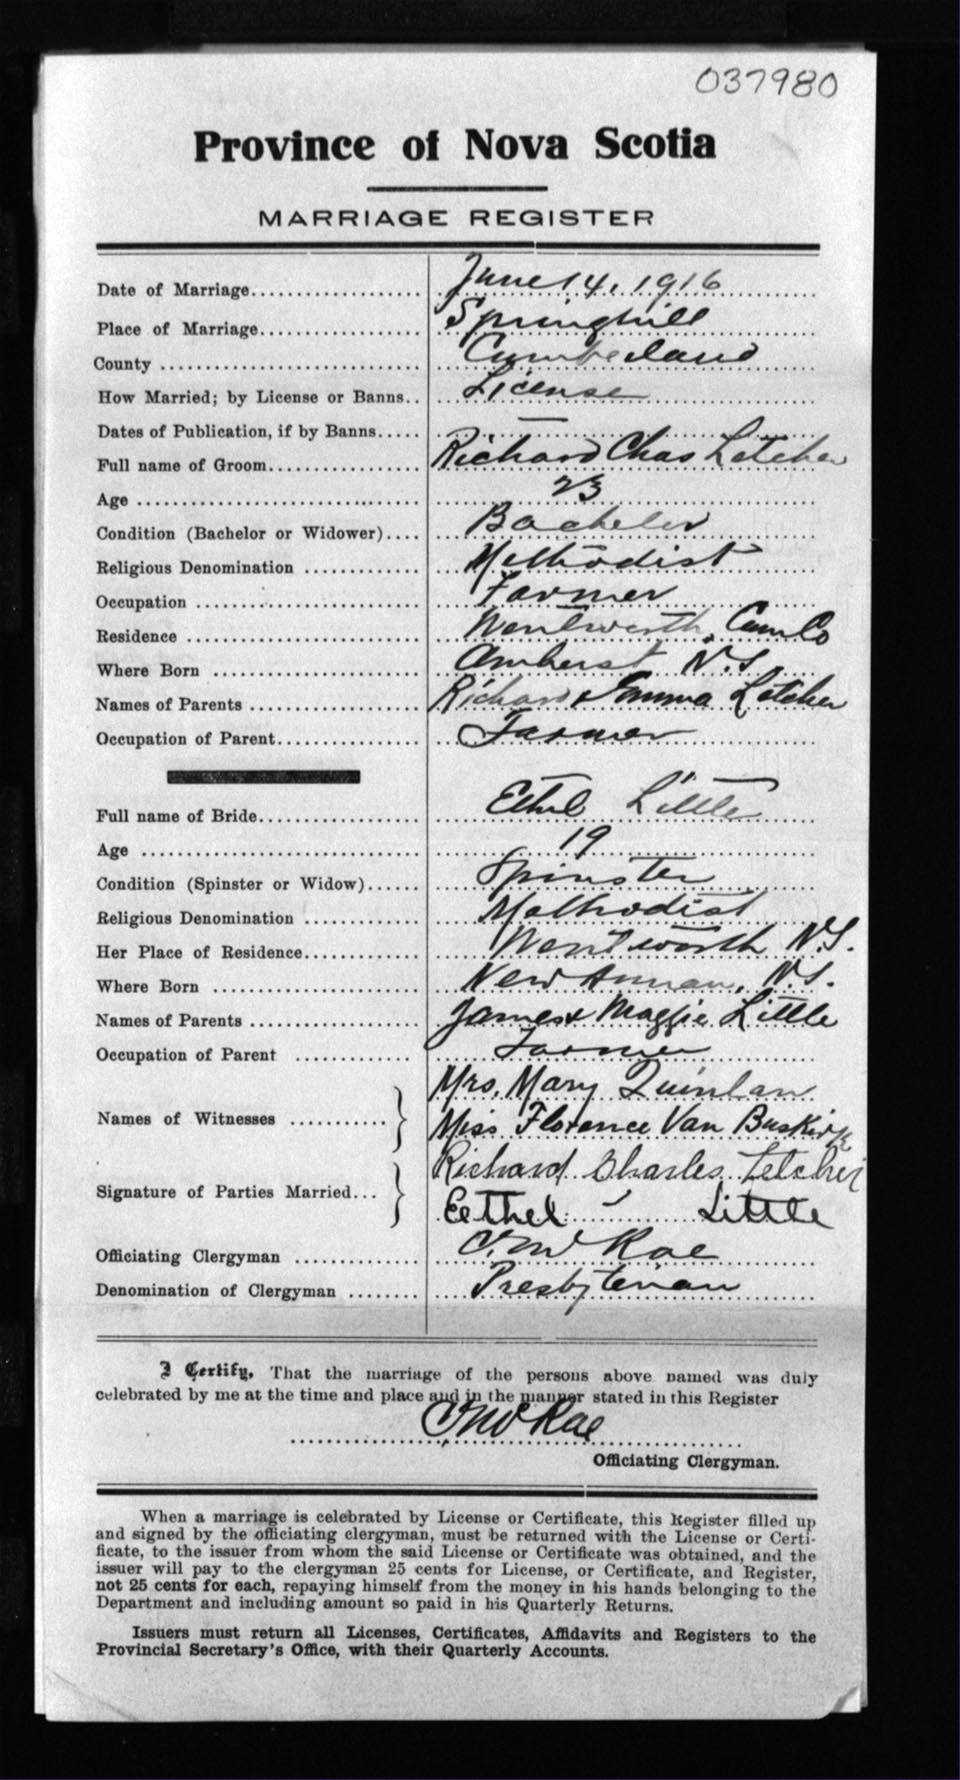 037980
Province of Nova Scotia
MARRIAGE REGISTER
Date of Marriage.................... June 14, 1916
Place of Marriage................... Springhill
County ............................. Cumberland
How Married; by License or Banns.. License
Dates of Publication, if by Banns..... —
Full name of Groom.................. Richard Chas Letcher
Age ................................ 23
Condition (Bachelor or Widower).... Bachelor
Religious Denomination ............. Methodist
Occupation ......................... Farmer
Residence .......................... Wentworth, Cum Co
Where Born ......................... Amherst N.S.
Names of Parents ................... Richard & Emma Letcher
Occupation of Parent................ Farmer
Full name of Bride.................. Ethel Little
Age ................................ 19
Condition (Spinster or Widow)...... Spinster
Religious Denomination ............. Methodist
Her Place of Residence............. Wentworth N.S.
Where Born ......................... New Annan, N.S.
Names of Parents ................... James & Maggie Little
Occupation of Parent ............... Farmer
Names of Witnesses ........... } Mrs. Mary Quinlan
Miss Florence Van Buskirk
Signature of Parties Married... } Richard Charles Letcher
Eethel Little
Officiating Clergyman .............. McRae
Denomination of Clergyman ........ Presbyterian
I Certify, That the marriage of the persons above named was duly
celebrated by me at the time and place and in the manner stated in this Register
McRae
Officiating Clergyman.
When a marriage is celebrated by License or Certificate, this Register filled up
and signed by the officiating clergyman, must be returned with the License or Certi-
ficate, to the issuer from whom the said License or Certificate was obtained, and the
issuer will pay to the clergyman 25 cents for License, or Certificate, and Register,
not 25 cents for each, repaying himself from the money in his hands belonging to the
Department and including amount so paid in his Quarterly Returns.
Issuers must return all Licenses, Certificates, Affidavits and Registers to the
Provincial Secretary's Office, with their Quarterly Accounts.